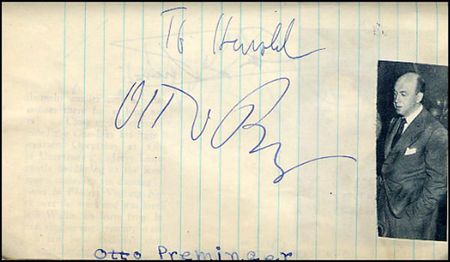 To Harold
Otto Pr
Otto Preminger